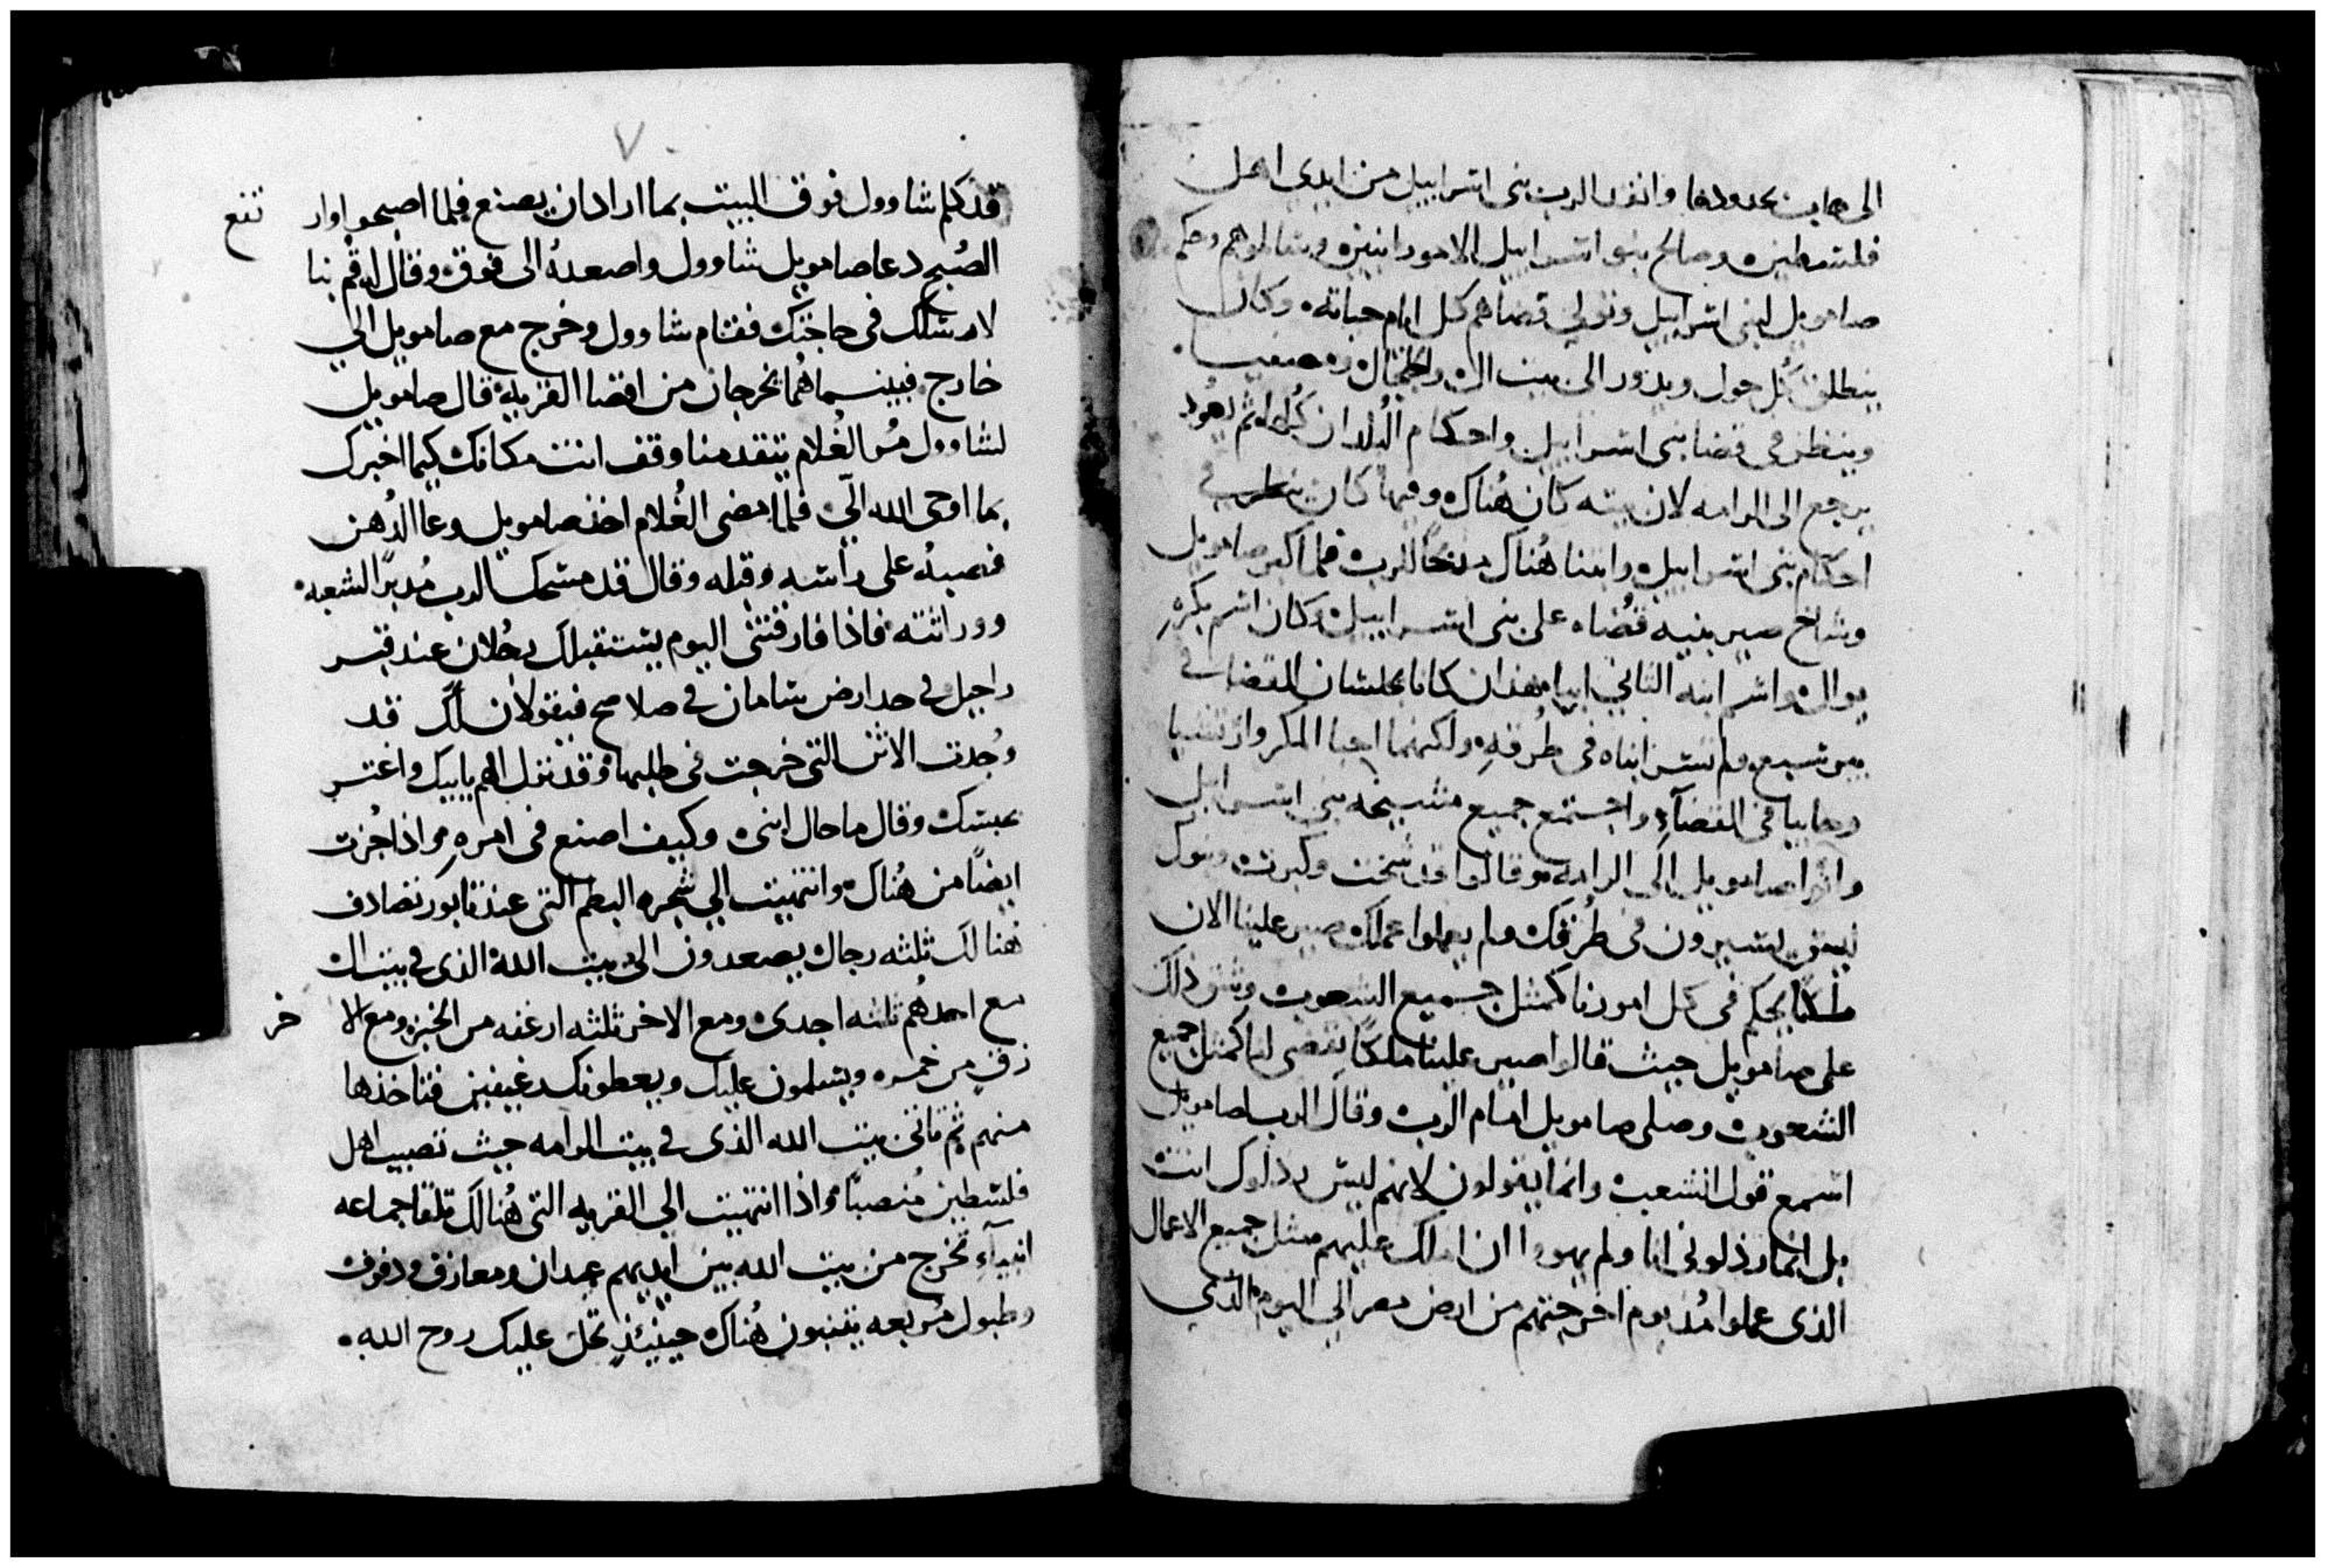 الى جاث بحدودها وانقذ الرب بنى اسراييل من ايدى اهل
فلسطين وصالح بنو اسراييل الامورانيين وسالموهم وحكم
صامويل لبنى اسراييل وتولى قضاهم كل ايام حياته وكان
ينطلق كل حول ويدور الى بيت ال والجلجال ومصفيا
وينظر فى قضا بنى اسراييل واحكام البلدان كلها ثم يعود
يرجع الى الرامه لان بيته كان هناك وفيها كان ينظر فى
احكام بنى اسراييل وابتنا هناك مذبحًا للرب فلما كبر صامويل
وشاخ صير بنيه قضاه على بنى اسراييل وكان اسم بكره
يوال واسم ابنه الثانى ابيا هذان كانا يجلسان للقضا فى
بيرشبع ولم تسر ابناه فى طرقه ولكنهما احبا المكر وارتشيا
وحابيا فى القضآء واجتمع جميع مشيخه بنى اسراييل
واتوا صامويل الى الرامه وقالوا قد شخت وكبرت وبنوك
ليس يسيرون فى طرقك ولم يعملوا عملك صير علينا الان
ملكًا يحكم فى كل امورنا كمثل جميع الشعوب وشق ذلك
على صامويل حيث قالوا صير علينا ملكًا يقضى لنا كمثل جميع
الشعوب وصلى صامويل امام الرب وقال الرب لصامويل
اسمع قول الشعب وانما يقولون لانهم ليس رذلوك انت
بل انما رذلونى انا ولم يهووا ان املك عليهم مثل جميع الاعمال
الذى عملوا مُذ يوم اخرجتهم من ارض مصر الى اليوم الذى
٧
قد كلم شاوول فوق البيت بما اراد ان يصنع فلما اصبحوا وار تفع
الصُبح دعا صامويل شاوول واصعدهُ الى فوق وقال له قم بنا
لارسلك فى حاجتك فقام شاوول وخرج مع صامويل الى
خارج فبينما هُما يخرجان من اقصا القريه قال صامويل
لشاوول مُر الغُلام يتقدمنا وقف انت مكانك كيما اخبرك
بما اوحى الله الىّ فلما مضى الغُلام اخذ صامويل وعا الدُهن
فصبهُ على راسه وقبله وقال قد مسحك الرب مُدبرًا لشعبه
ووراثته فاذا فارقتنى اليوم يستقبلك رجُلان عند قبر
راحيل فى حد ارض بنيامان فى صلاصح فيقولان لك قد
وُجدت الاتن التى خرجت فى طلبها وقد نزل الهم بابيك واغتم
بحبسك وقال ما حال ابنى وكيف اصنع فى امره واذا جُزت
ايضًا من هُناك وانتهيت الى شجره البطم التى عند تابور تصادف
هنالك ثلثه رجال يصعدون الى بيت الله الذى فى بيت ال
مع احدهُم ثلثه اجدى ومع الاخر ثلثه ارغفه من الخبز ومع الا خر
زق من خمر ويسلمون عليك ويعطونك رغيفين فتاخذها
منهم ثم تاتى بيت الله الذى فى بيت الرامه حيث نصيب اهل
فلسطين مُنصبًا واذا انتهيت الى القريه التى هُنالك تلقا جماعه
انبيآء تخرج من بيت الله بين ايديهم عيدان ومعازف ودفوف
وطبول مُربعه يتنبون هُناك حينيئذٍ تحل عليك روح الله